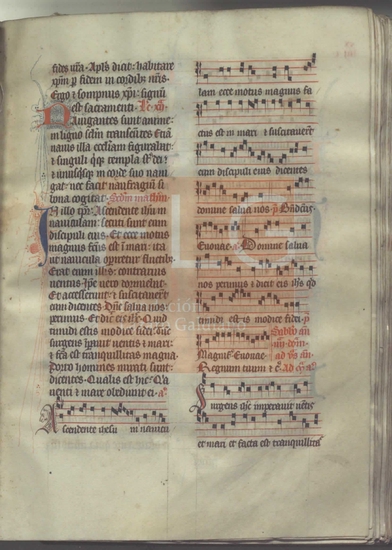 fides vr̃a. Apl̃s dicat habitare
xp̃m p̃ fidem in cordib; nr̃is.
Ergo & sompnus xp̃i: signũ
est sacramenti. Lc̃. xii
Nauigantes sunt anime
in ligno sc̃m transeũtes. Etiã
nauis illa ecc̃iam figurabat
& singuli q̃q; templa st̃ dei &
unusq̃sq; in corde suo naui
gat: nec facit naufragiũ si
bona cogitat. Sc̃dm matheũ.
In illo tp̃r. Ascendente ih̃u in
nauiculam: secuti sunt eum
discipuli eius. Et ecce motus
magnus fc̃us est in mari. ita
ut nauicula operiret̃ fluctib;
Erat enim illis contrarius
uentus. Ip̃e uero dormiebat.
Et accesserunt & suscitauer̃t
eum dicentes. Dñe salua nos
perimus. Et dic̃ eis ih̃c. Quid
timidi estis modice fidei. Tũc
surgens imperauit uentis & mari:
& fc̃a est tranquillitas magna.
Porro homines mirati sunt:
dicentes. Qualis est hic. Quia
uenti & mare obediunt ei. a͠
Ascendente ihesu in nauicu
lam ecce motus magnus fa
ctus est in mari & suscitauer̃t
eum discipuli eius dicentes
domine salua nos. p̃. Bñdictus
Euouae. a͠. Domine salua
nos perimus & dicit eis ih̃s qd̃
timidi estis modice fidei. p̃
Magnif. Euouae.
Regnum tuum & c̃. Ad
Surgens ih̃c imperauit uẽtis
et mari et facta est tranquillitas